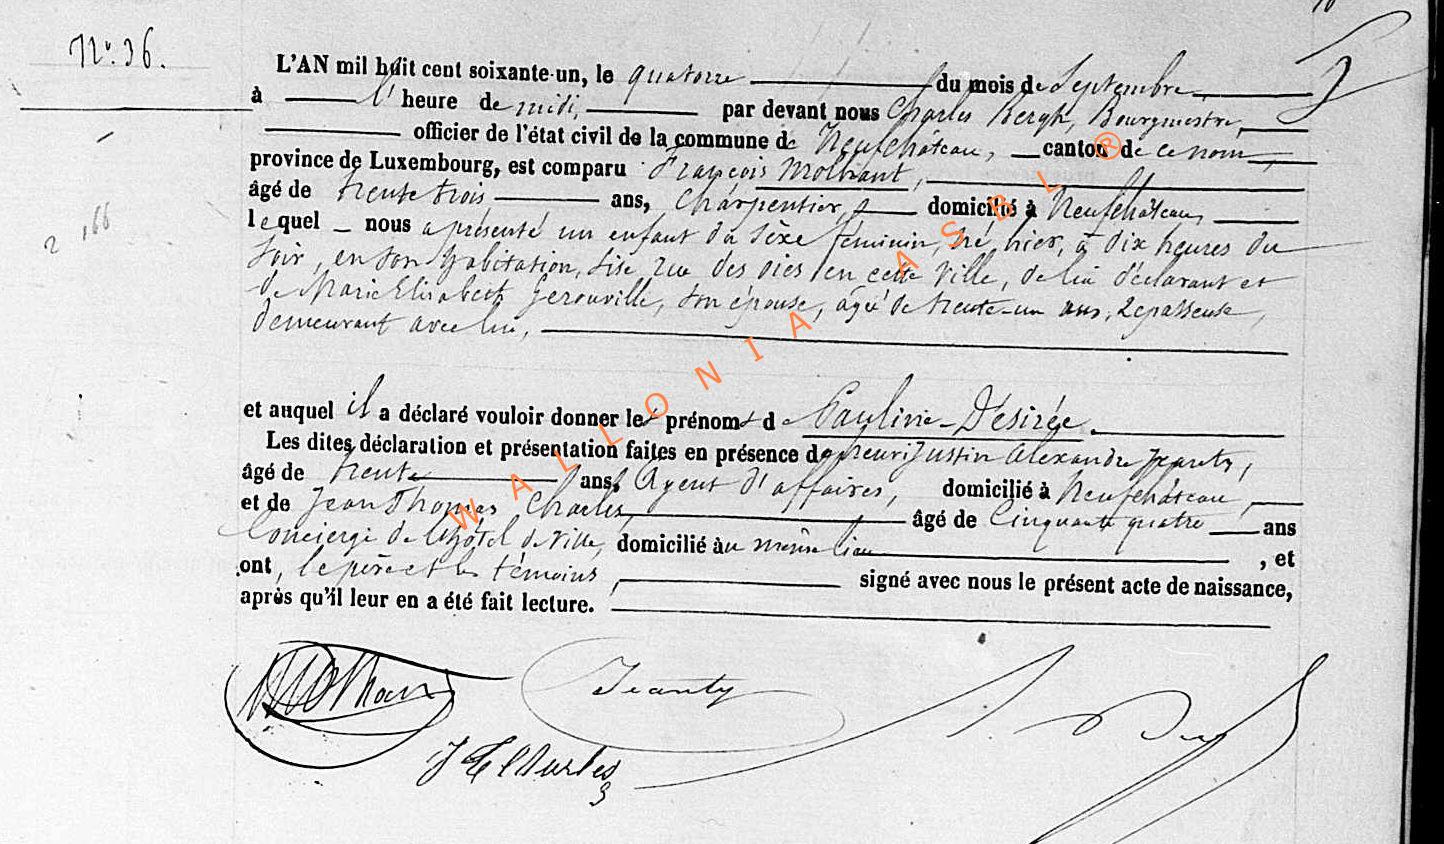 N° 36.
L'AN mil huit cent soixante-un, le quatorze du mois de Septembre,
à l'heure de midi, par devant nous Charles Bergh, Bourgmestre,
officier de l'état civil de la commune de Neufchâteau, canton de ce nom,
province de Luxembourg, est comparu François Molhant,
âgé de trente trois ans, Charpentier, domicilié à Neufchâteau,
lequel nous a présenté un enfant du sexe féminin, né, hier, à dix heures du
soir, en son habitation, sise rue des oies en cette ville, de lui déclarant et
de Marie Elisabeth Gerouville, son épouse, âgée de trente-un ans, Repasseuse,
demeurant avec lui,
et auquel il a déclaré vouloir donner les prénoms de Pauline-Désirée.
Les dites déclaration et présentation faites en présence de henri Justin Alexandre Jeanty,
âgé de trente ans, Agent d'affaires, domicilié à Neufchâteau,
et de Jean Thomas Charles, âgé de Cinquante quatre ans
Concierge de l'hôtel de Ville, domicilié au même lieu, et
ont, le père et les témoins, signé avec nous le présent acte de naissance,
après qu'il leur en a été fait lecture.
Molhant
Jeanty
J T Charles
WALLONIA ASBL ®